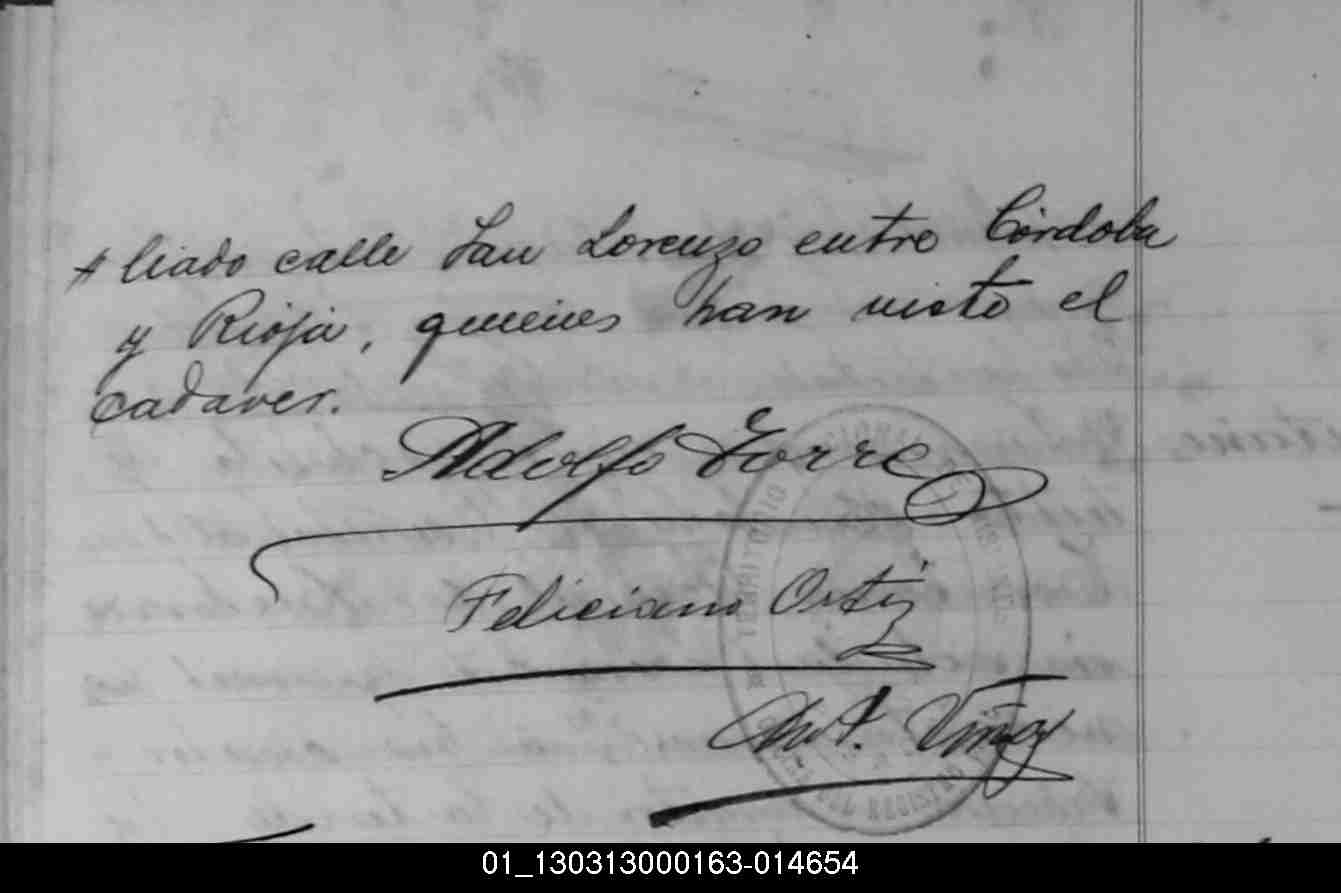 + liado calle San Lorenzo entre Córdoba
y Rioja, quienes han visto el
cadaver.
Adolfo Torre
Feliciano Ortiz
Ant. Viñay
TERRITORIO
REGISTRO
01_130313000163-014654